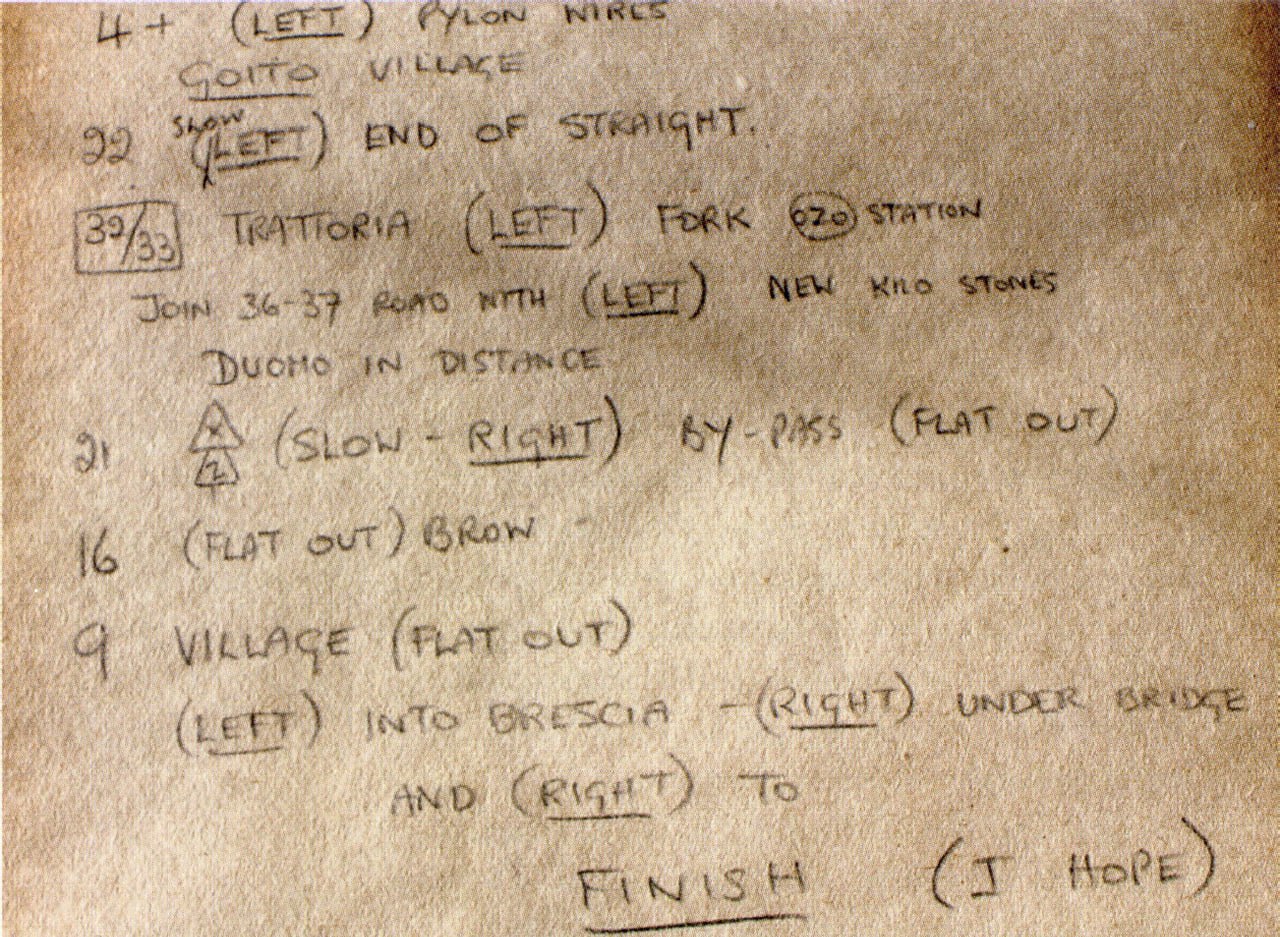 4+ (LEFT) PYLON WIRES
GOITO VILLAGE
22 SLOW (LEFT) END OF STRAIGHT.
39/33 TRATTORIA (LEFT) FORK OZO STATION
JOIN 36-37 ROAD WITH (LEFT) NEW KILO STONES
DUOMO IN DISTANCE
21 X 2 (SLOW - RIGHT) BY-PASS (FLAT OUT)
16 (FLAT OUT) BROW
9 VILLAGE (FLAT OUT)
(LEFT) INTO BRESCIA - (RIGHT) UNDER BRIDGE
AND (RIGHT) TO
FINISH (I HOPE)